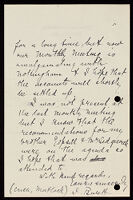 for a long time but now
our monthly meeting is
amalgamating with
Nottingham & I hope that
the accounts will shortly
be settled up.
I was not present at
the last monthly meeting
but I know that the
recommendations for our
brother
were on the agenda so
I hope that was
attended to
With kind regards,
yours sincerely